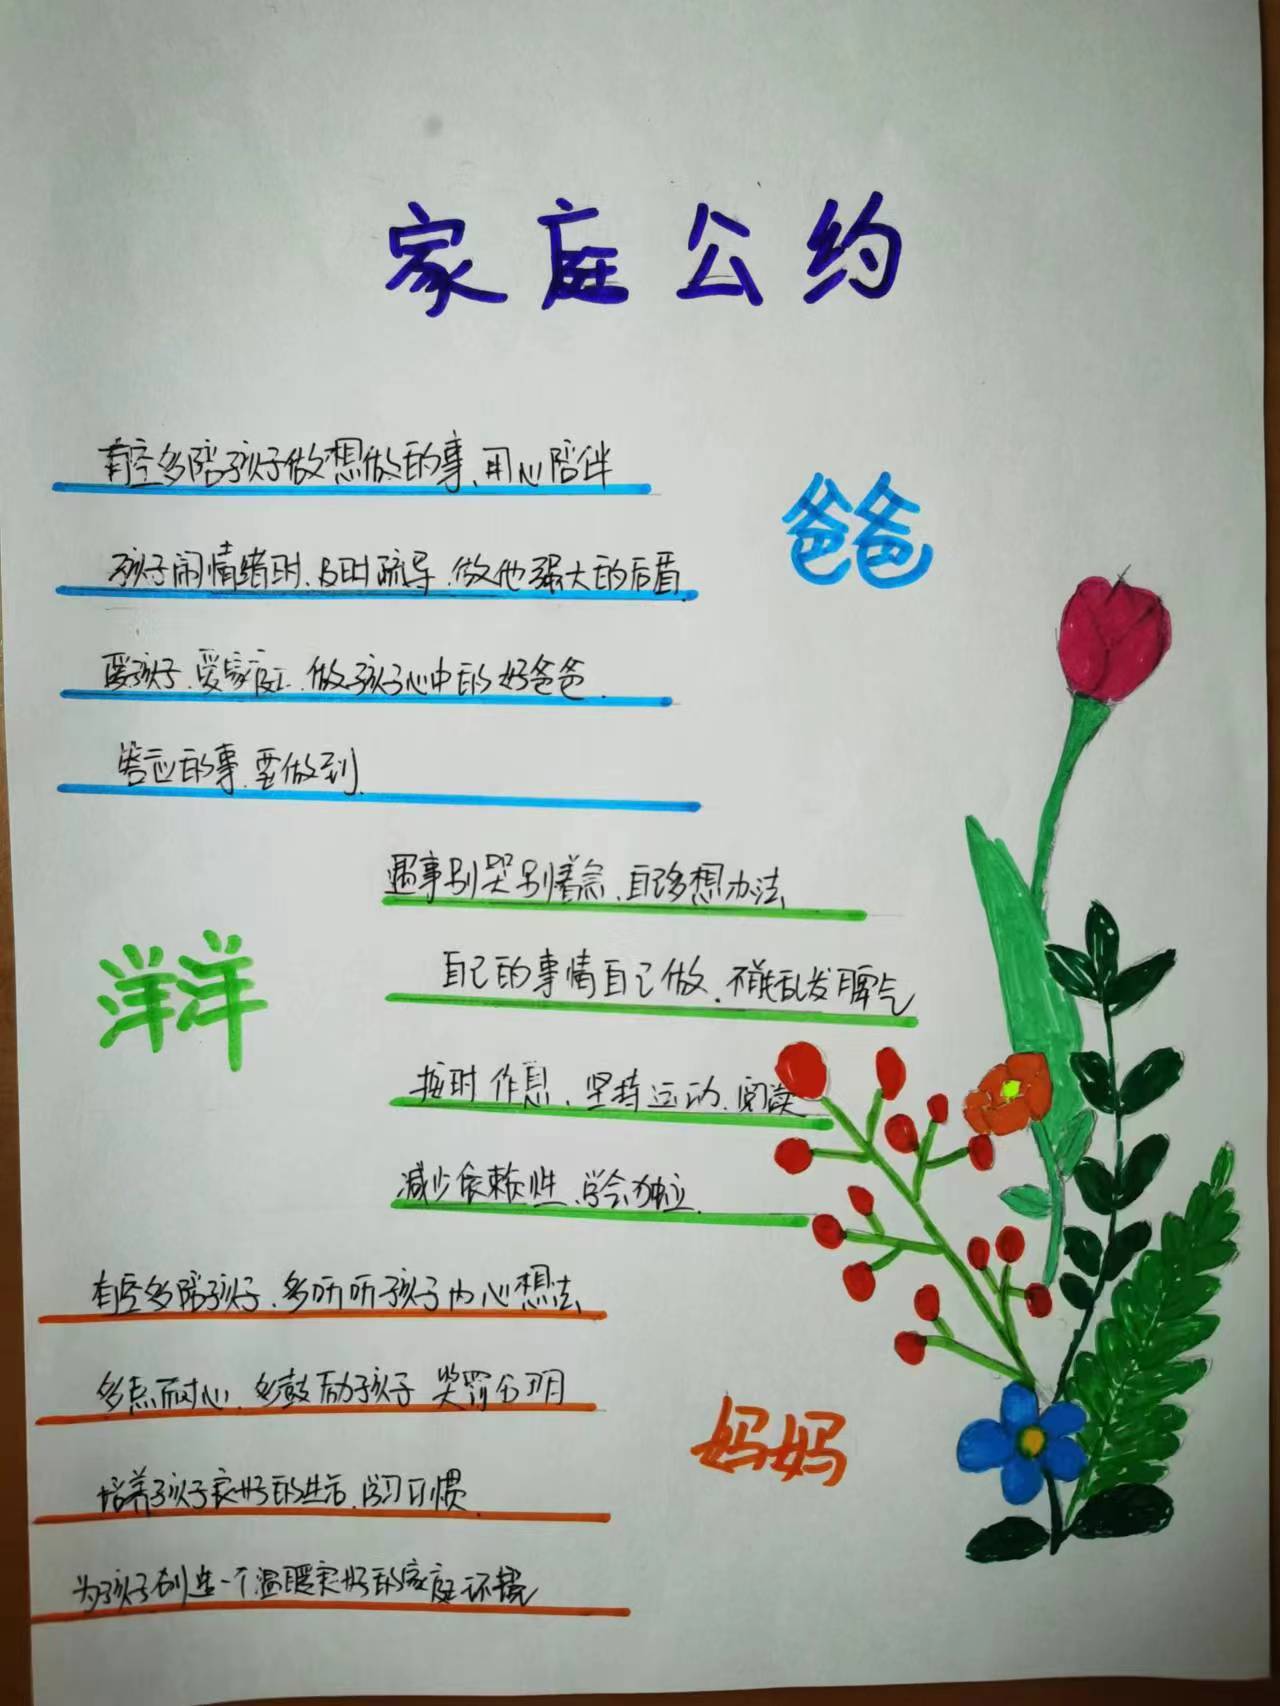 家庭公约
有空多陪孩子做想做的事、用心陪伴
爸爸
孩子闹情绪时、及时疏导、做他强大的后盾.
爱孩子、爱家庭、做孩子心中的好爸爸.
答应的事、要做到.
遇事别哭别着急、自己多想办法
洋洋
自己的事情自己做、不能乱发脾气
按时作息、坚持运动、阅读
减少依赖性、学会独立.
有空多陪孩子、多听听孩子内心想法
多点耐心、多鼓励孩子 奖罚分明
妈妈
培养孩子良好的生活、学习习惯
为孩子创造一个温暖美好的家庭环境